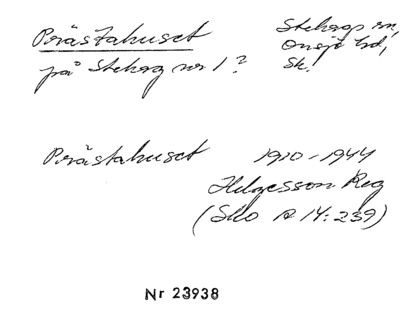 Prästahuset
på Stehag nr 1?
Stehags sn,
Onsjö hd,
Sk.
Prästahuset 1910-1944
Helgesson Reg
(SLO A 14:239)
Nr 23938